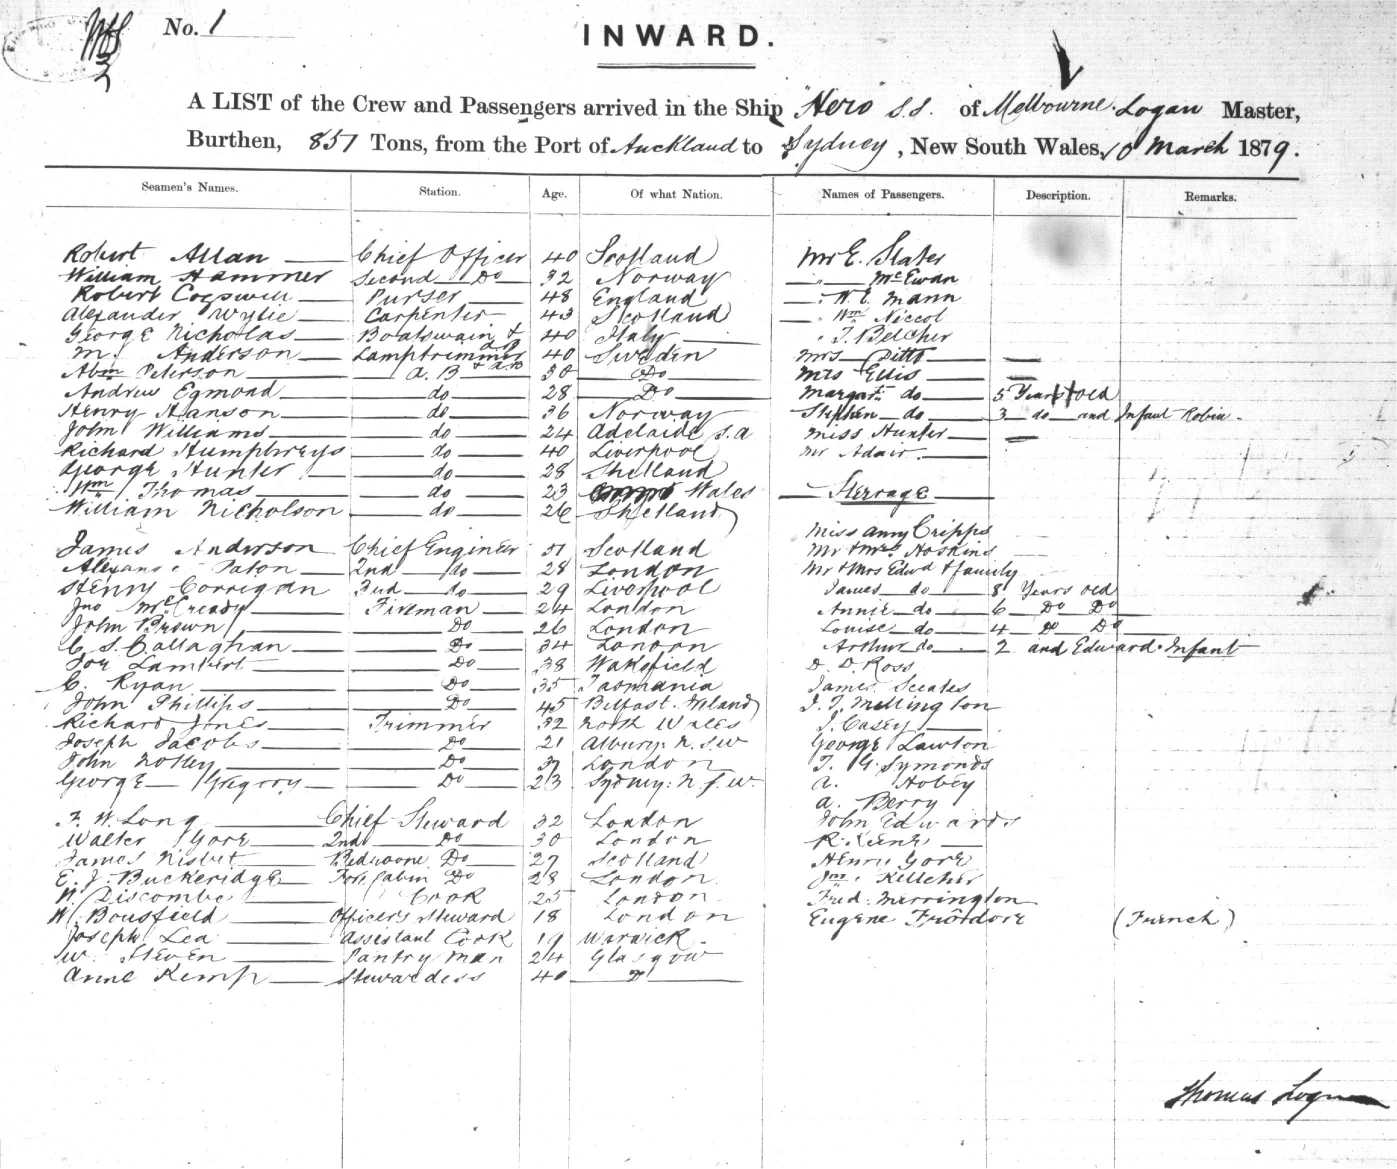 No. 1
INWARD.
A LIST of the Crew and Passengers arrived in the Ship "Hero" S.S. of Melbourne. Logan Master,
Burthen, 857 Tons, from the Port of Auckland to Sydney, New South Wales, 10 March 1879.
Seamen's Names. Station. Age. Of what Nation. Names of Passengers. Description. Remarks.
Robert Allan Chief Officer 40 Scotland Mr E. Slater
William Hammer Second Do 32 Norway " McEwan
Robert Cogswell Purser 48 England " W. E. Mann
Alexander Wylie Carpenter 43 Scotland " Wm Niccol
George Nicholas Boatswain & AB 40 Italy " T. Belcher
M. Anderson Lamptrimmer & AB 40 Sweden Mrs Ditto
Abm Peterson A.B 30 Do Mrs Ellis
Andrew Egmond do 28 Do Margart do 5 Years old
Henry Hanson do 36 Norway Stephen do 3 do and Infant Robin.
John Williams do 24 Adelaide S.A Miss Hunter
Richard Humphreys do 40 Liverpool Mr Adair.
George Hunter do 28 Shetland
Wm Thomas do 23 Wales Steerage
William Nicholson do 26 Shetland
Miss Amy Cripps
James Anderson Chief Engineer 51 Scotland Mr & Mrs Hoskins
Paton 2nd do 28 London Mr & Mrs Edwd & family
Henry Corrigan 3rd do 29 Liverpool James do 8 Years old
Jno McCready Fireman 24 London Annie do 6 Do Do
John Brown Do 26 London Louise do 4 Do Do
C. S. Callaghan Do 34 London Arthur do 2 and Edward Infant
Joe Lambert Do 38 Wakefield D. D Ross
C. Ryan Do 35 Tasmania James Sceates
John Phillips Do 45 Belfast Ireland J. T. Millington
Richard Jones Trimmer 32 North Wales J. Casey
Joseph Jacobs Do 21 Albury. N.S.W George Lawton
John Notley Do 37 London T. G. Symonds
George Gregory Do 23 Sydney. N.S.W. A. Hobey
A. Berry
F. W. Long Chief Steward 32 London John Edwards
Walter Gore 2nd Do 30 London R. Keene
James Nisbet Bedroom Do 27 Scotland Henry Gore
E. J. Buckeridge Fore Cabin Do 28 London Jno. Kelleher
W. Discombe Cook 25 London Fred. Merrington
W. Bousfield Officer's Steward 18 London Eugene (French)
Joseph Lea Assistant Cook 19 Warwick.
W. Steven Pantry man 24 Glasgow
Anne Kemp Stewardess 40 D
Thomas Logan